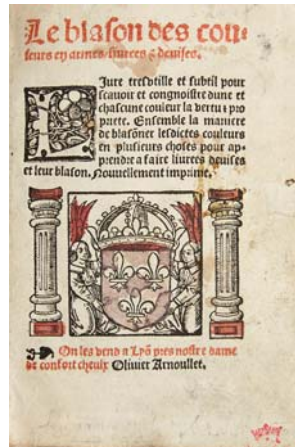 Le blason des cou-
leurs en armes/ livrees ⁊ devises.
Livre tresutile et subtil pour
scavoir et congnoistre dune et
chascune couleur la vertu ⁊ pro
priete. Ensemble la maniere
de blasõner lesdictes couleurs
en plusieurs choses pour ap-
prendre a faire livrees devises
et leur blason. Nouvellement imprime.
On les vend a Lyõ pres nostre dame
de confort cheulx Olivier Arnoullet.